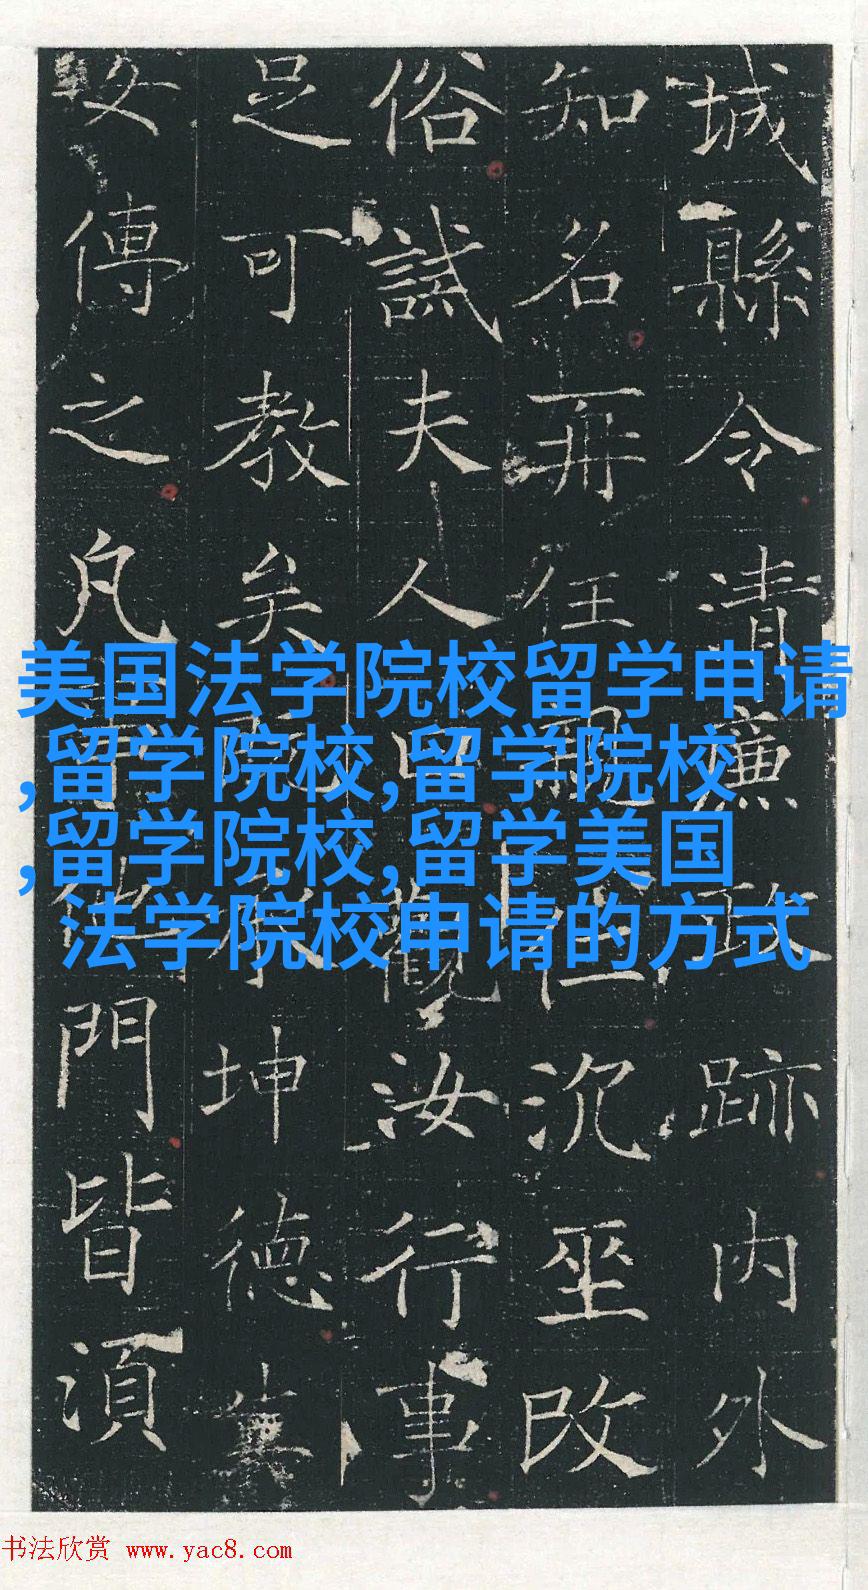 城縣令清廉政跡内外
知名再任親沉坐改
俗誡夫人曰觀汝行事
足可教矣坤德
傳之凡門皆須
美国法学院校留学申请
,留学院校,留学院校
,留学院校,留学美国
法学院校申请的方式
书法欣赏 www.yac8.com